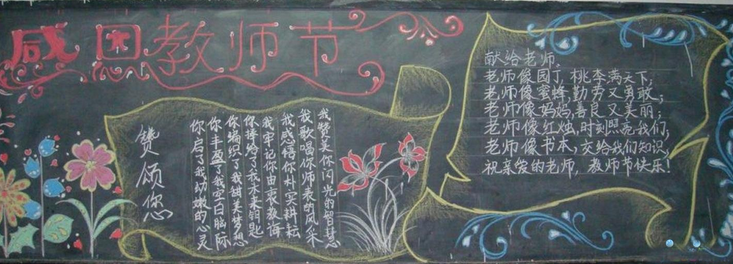 感恩教师节
赞颂您
我赞美你闪光的智慧
我歌唱你师表的风采
我感悟你朴实耕耘
我牢记你由衷教诲
你捧给了我未来钥匙
你编织了我甜美梦想
你丰盈了我空白脑际
你启了我幼嫩的心灵
献给老师,
老师像园丁,桃李满天下;
老师像蜜蜂,勤劳又勇敢;
老师像妈妈,善良又美丽;
老师像红烛,时刻照亮我们;
老师像书本,交给我们知识,
祝亲爱的老师,教师节快乐!